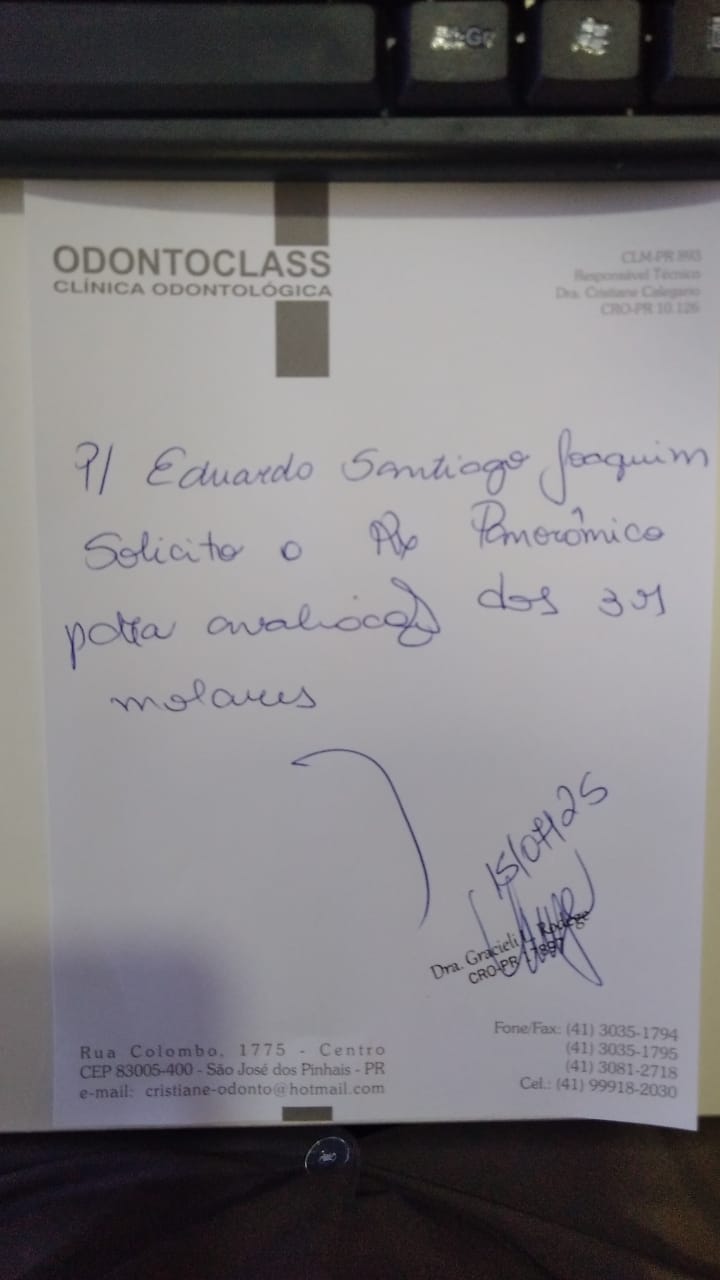 ODONTOCLASS
CLÍNICA ODONTOLÓGICA
CLM-PR 893
Responsável Técnico
Dra. Cristiane Calegario
CRO-PR 10.126
P/ Eduardo Santiago Joaquim
Solicito o Rx Panorâmico
para avaliação dos 3ºs
molares
15/07/25
Dra. Gracieli
CRO-PR
Rua Colombo, 1775 - Centro
CEP 83005-400 - São José dos Pinhais - PR
e-mail: cristiane-odonto@hotmail.com
Fone/Fax: (41) 3035-1794
(41) 3035-1795
(41) 3081-2718
Cel.: (41) 99918-2030